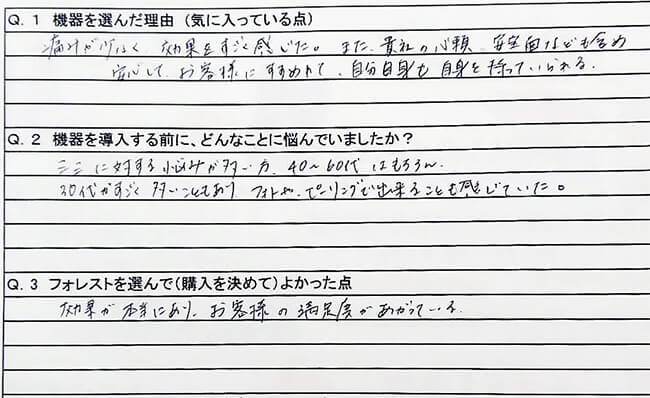 Q. 1 機器を選んだ理由（気に入っている点）
痛みが少なく、効果をすごく感じた。また、貴社の心頼、安全面なども含め
安心して、お客様にすすめれて、自分自身も自身を持っていられる。
Q. 2 機器を導入する前に、どんなことに悩んでいましたか？
シミに対する悩みが多い方、40～60代はもちろん、
30代がすごく多いこともあり フォトや、ピーリングで出来ることも感じていた。
Q. 3 フォレストを選んで（購入を決めて）よかった点
効果が本当にあり、お客様の満足度があがっている。